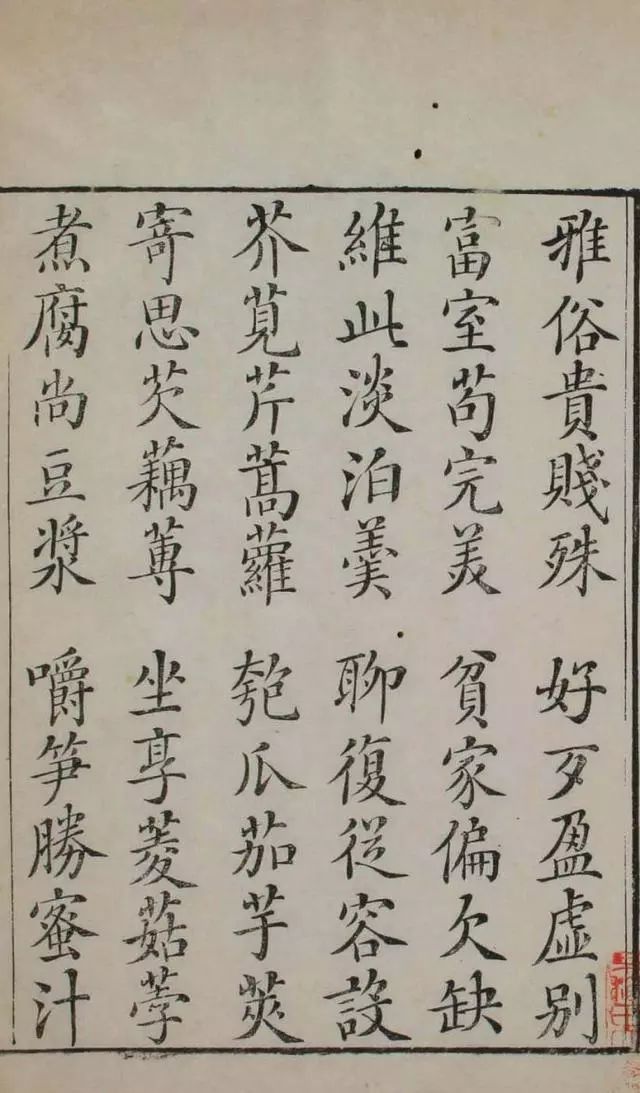 雅俗貴賤殊 好歹盈虛别
富室苟完美 貧家偏欠缺
維此淡泊羹 聊復從容設
芥莧芹蒿蘿 匏瓜茄芋莢
寄思芡藕蓴 坐享菱菰荸
煮腐尚豆漿 嚼笋勝蜜汁